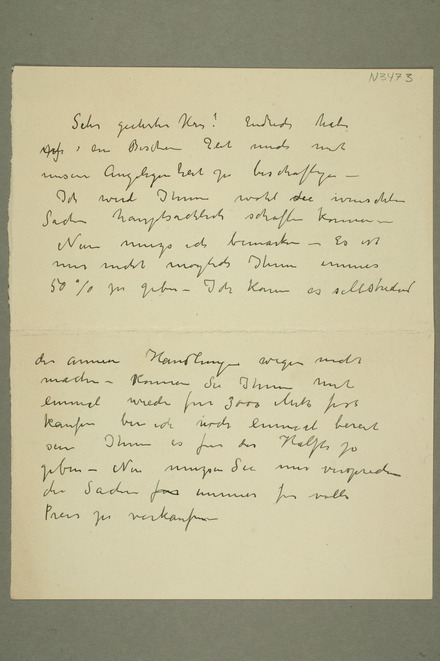 N3473
Sehr geehrter Herr! Endlich habe
ich, ein Bischen Zeit mich mit
unsern Angelegenheit zu beschäftigen –
Ich werd Ihnen wohl die wunschten
Sachen hauptsachlich schaffen konnen –
Nun muzs ich bemerken – Es ist
mir nicht moglich Ihnen immer
50% zu geben – Ich kann es selbstredend
der armen Handlungen wegen nicht
machen – Konnen Sie Ihnen mit
einmal wieder fur 3000 Mark fest
kaufen bin ich noch einmal bereit
sein Ihnen es fur der Halfte zu
geben – Nur muzsen Sie mir versprechen
die Sachen immer fur volle
Preis zu verkaufen